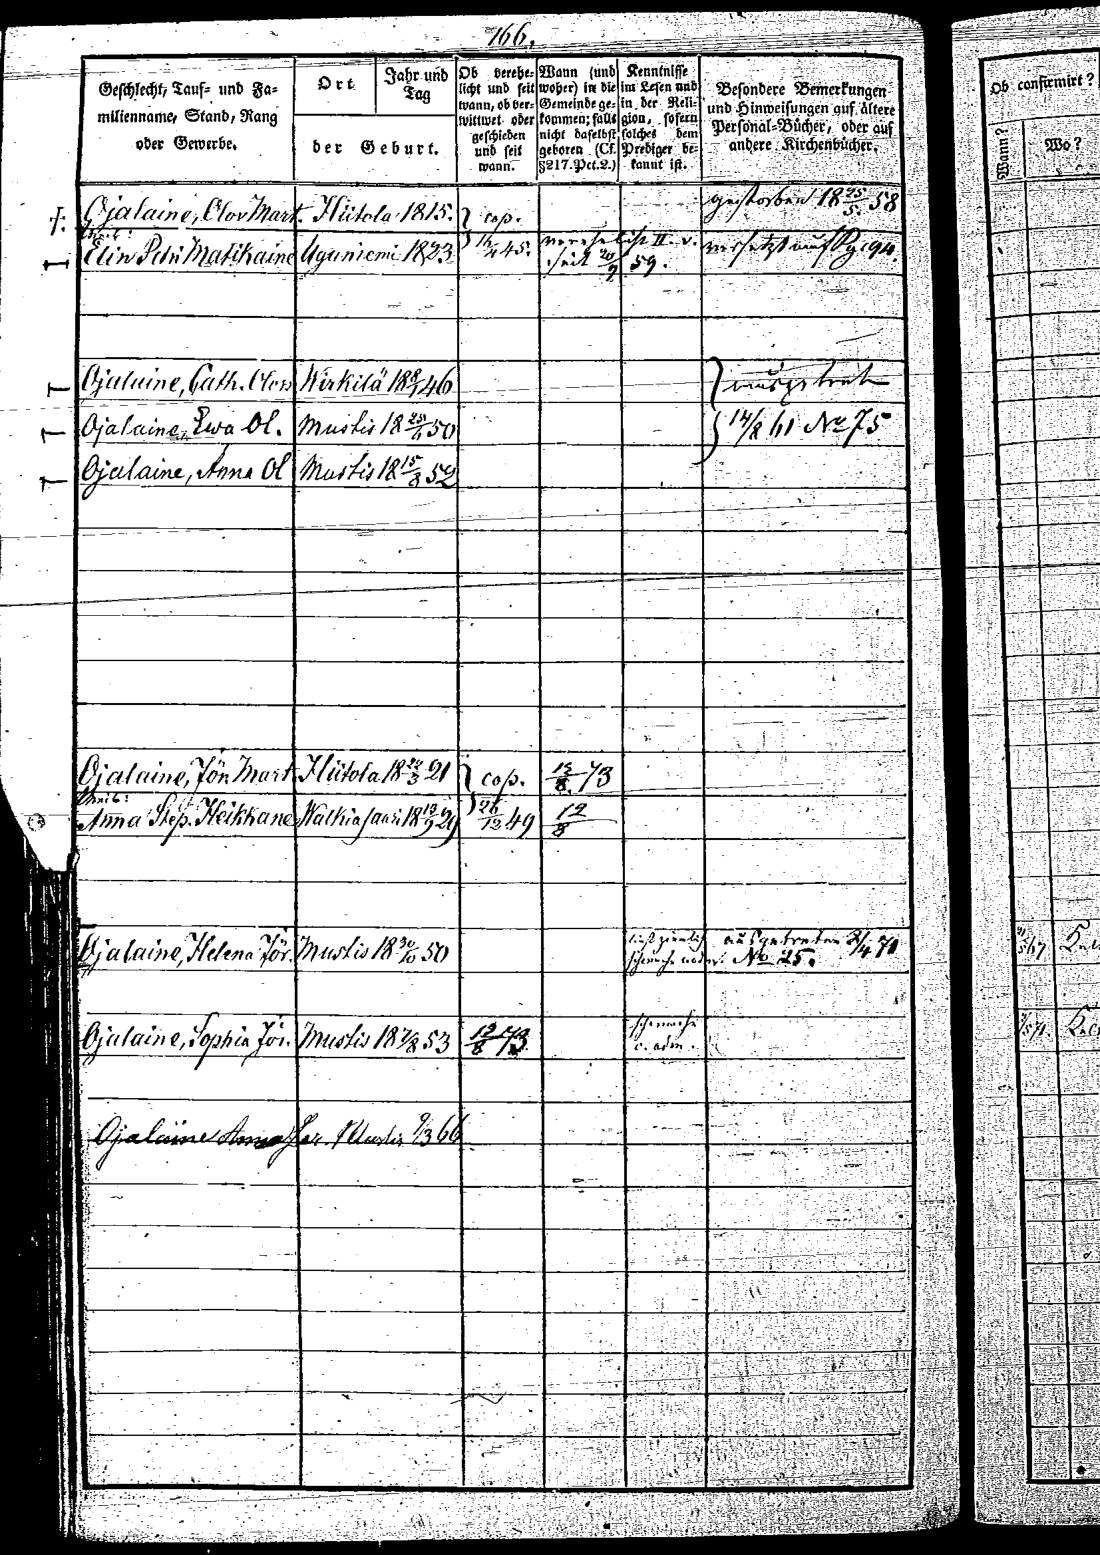 166.
Geschlecht, Tauf- und Fa-
milienname, Stand, Rang
oder Gewerbe.
Ort
Jahr und
Tag
der Geburt.
Ob verehe-
licht und seit
wann, ob ver-
wittwet oder
geschieden
und seit
wann.
Wann (und
woher) in die
Gemeinde ge-
kommen; falls
nicht daselbst
geboren (Cf.
§217. Pct. 2.)
Kenntnisse
im Lesen und
in der Reli-
gion, sofern
solches dem
Prediger be-
kannt ist.
Besondere Bemerkungen
und Hinweisungen auf ältere
Personal-Bücher, oder auf
andere Kirchenbücher.
Ob confirmirt?
Wann?
Wo?
Ojalaine, Olov Mart. Hiitola 1815. } cop. gestorben 18 25/5 58
Weib:
Elin Matikaine Uguniemi 1823 45. seit 20/9 59. versetzt auf Pg. 94.
Ojalaine, Cath. Olov Kirkilä 18 46 } ausgetret
Ojalaine, Ewa Ol. Mustis 18 50 } 14/8 61 No 75
Ojalaine, Anna Ol Mustis 18 15/8 52
Ojalaine, Jör Mart Hiitola 18 21 } cop. 12/8 73
Weib:
Anna Step. Heikkane 18 29 26/12 49 12/8
Ojalaine, Helena Jör. Mustis 18 30/10 50 ausgetreten 71
No 25.
Ojalaine, Sophia Jör. Mustis 18 53 12/8 73 schwach
c. adm.
Ojalaine Anna Mustis 9/3 66